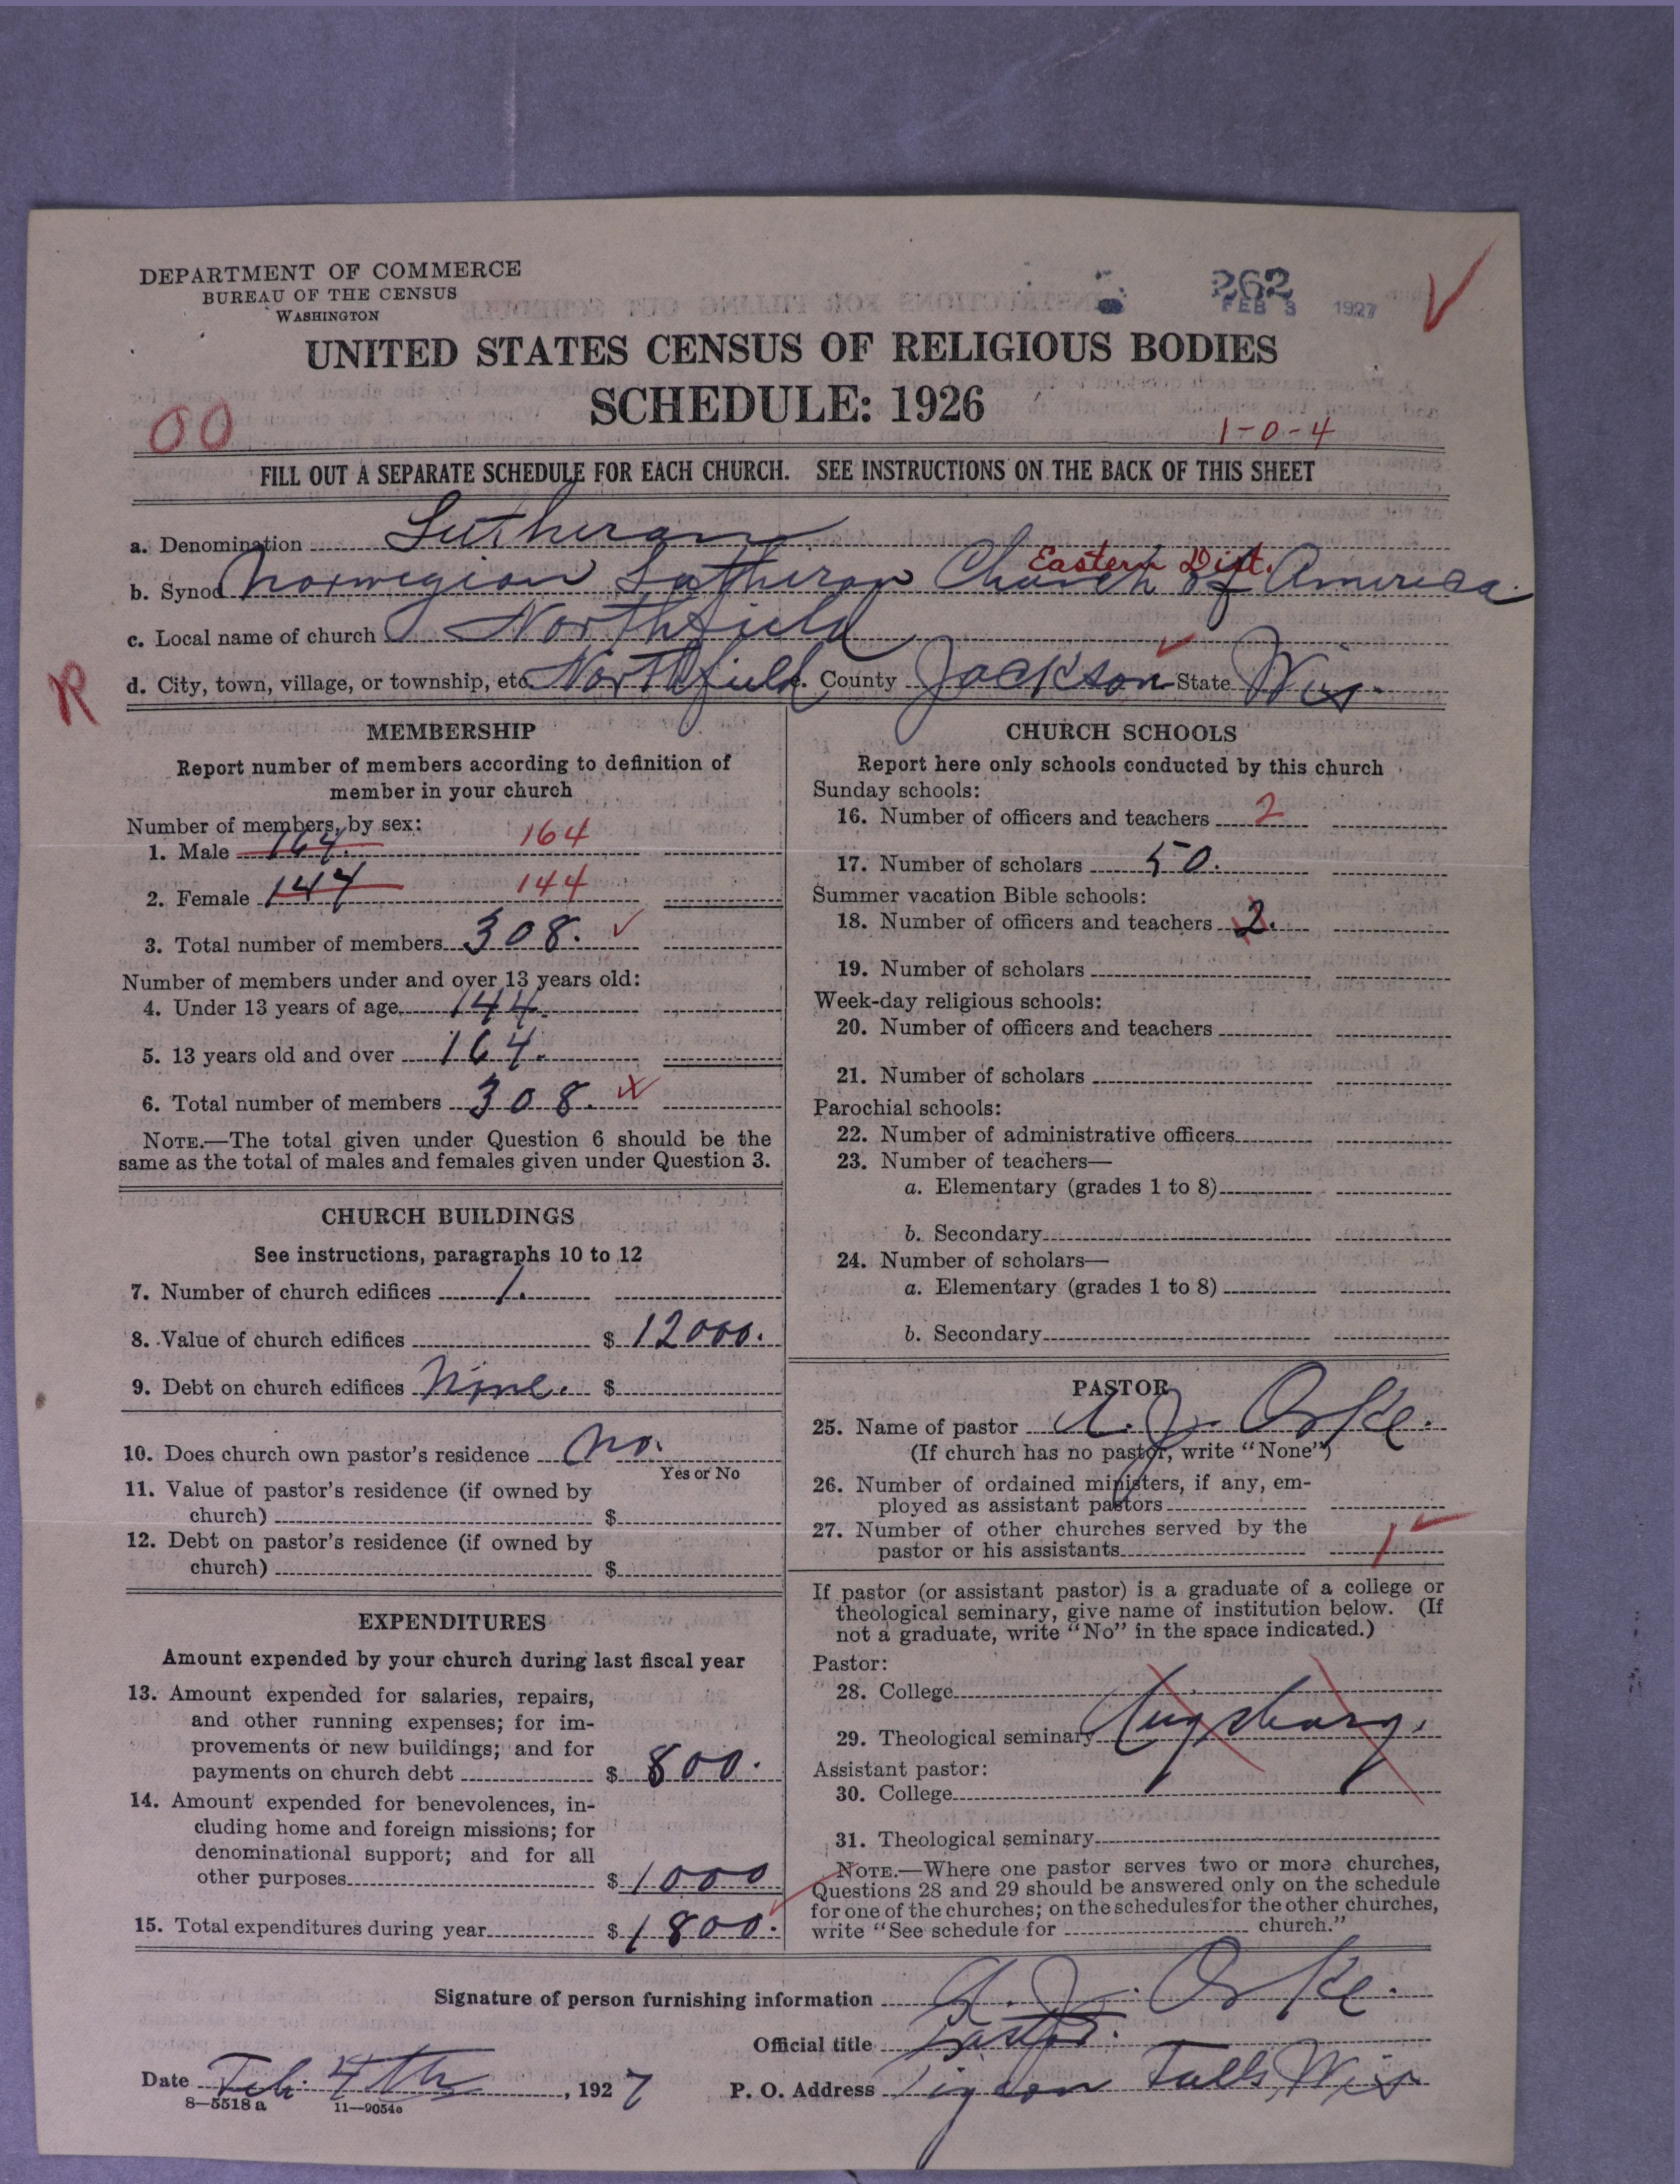 DEPARTMENT OF COMMERCE
BUREAU OF THE CENSUS
WASHINGTON
262
FEB 3 1927
UNITED STATES CENSUS OF RELIGIOUS BODIES
SCHEDULE: 1926
00
1-0-4
FILL OUT A SEPARATE SCHEDULE FOR EACH CHURCH. SEE INSTRUCTIONS ON THE BACK OF THIS SHEET
a. Denomination Lutheran
Eastern Dist.
b. Synod Norwegian Lutheran Church of America
c. Local name of church Northfield
R
d. City, town, village, or township, etc. Northfield County Jackson State Wis.
MEMBERSHIP
Report number of members according to definition of
member in your church
Number of members, by sex:
1. Male 164. 164
2. Female 144 144
3. Total number of members 308.
Number of members under and over 13 years old:
4. Under 13 years of age 144.
5. 13 years old and over 164.
6. Total number of members 308.
NOTE.—The total given under Question 6 should be the
same as the total of males and females given under Question 3.
CHURCH BUILDINGS
See instructions, paragraphs 10 to 12
7. Number of church edifices 1.
8. Value of church edifices $ 12000.
9. Debt on church edifices None. $
10. Does church own pastor's residence No.
Yes or No
11. Value of pastor's residence (if owned by
church) $
12. Debt on pastor's residence (if owned by
church) $
EXPENDITURES
Amount expended by your church during last fiscal year
13. Amount expended for salaries, repairs,
and other running expenses; for im-
provements or new buildings; and for
payments on church debt $ 800.
14. Amount expended for benevolences, in-
cluding home and foreign missions; for
denominational support; and for all
other purposes $ 1000
15. Total expenditures during year $ 1800.
CHURCH SCHOOLS
Report here only schools conducted by this church
Sunday schools:
16. Number of officers and teachers 2
17. Number of scholars 50.
Summer vacation Bible schools:
18. Number of officers and teachers 2.
19. Number of scholars
Week-day religious schools:
20. Number of officers and teachers
21. Number of scholars
Parochial schools:
22. Number of administrative officers
23. Number of teachers—
a. Elementary (grades 1 to 8)
b. Secondary
24. Number of scholars—
a. Elementary (grades 1 to 8)
b. Secondary
PASTOR
25. Name of pastor A. J. Orke.
(If church has no pastor, write "None")
26. Number of ordained ministers, if any, em-
ployed as assistant pastors
27. Number of other churches served by the
pastor or his assistants 1
If pastor (or assistant pastor) is a graduate of a college or
theological seminary, give name of institution below. (If
not a graduate, write "No" in the space indicated.)
Pastor:
28. College
29. Theological seminary Augsburg.
Assistant pastor:
30. College
31. Theological seminary
NOTE.—Where one pastor serves two or more churches,
Questions 28 and 29 should be answered only on the schedule
for one of the churches; on the schedules for the other churches,
write "See schedule for church."
Signature of person furnishing information A. J. Orke.
Official title Pastor.
Date Feb. 4th, 1927 P. O. Address Pigeon Falls, Wis
8—5518 a 11—9054a